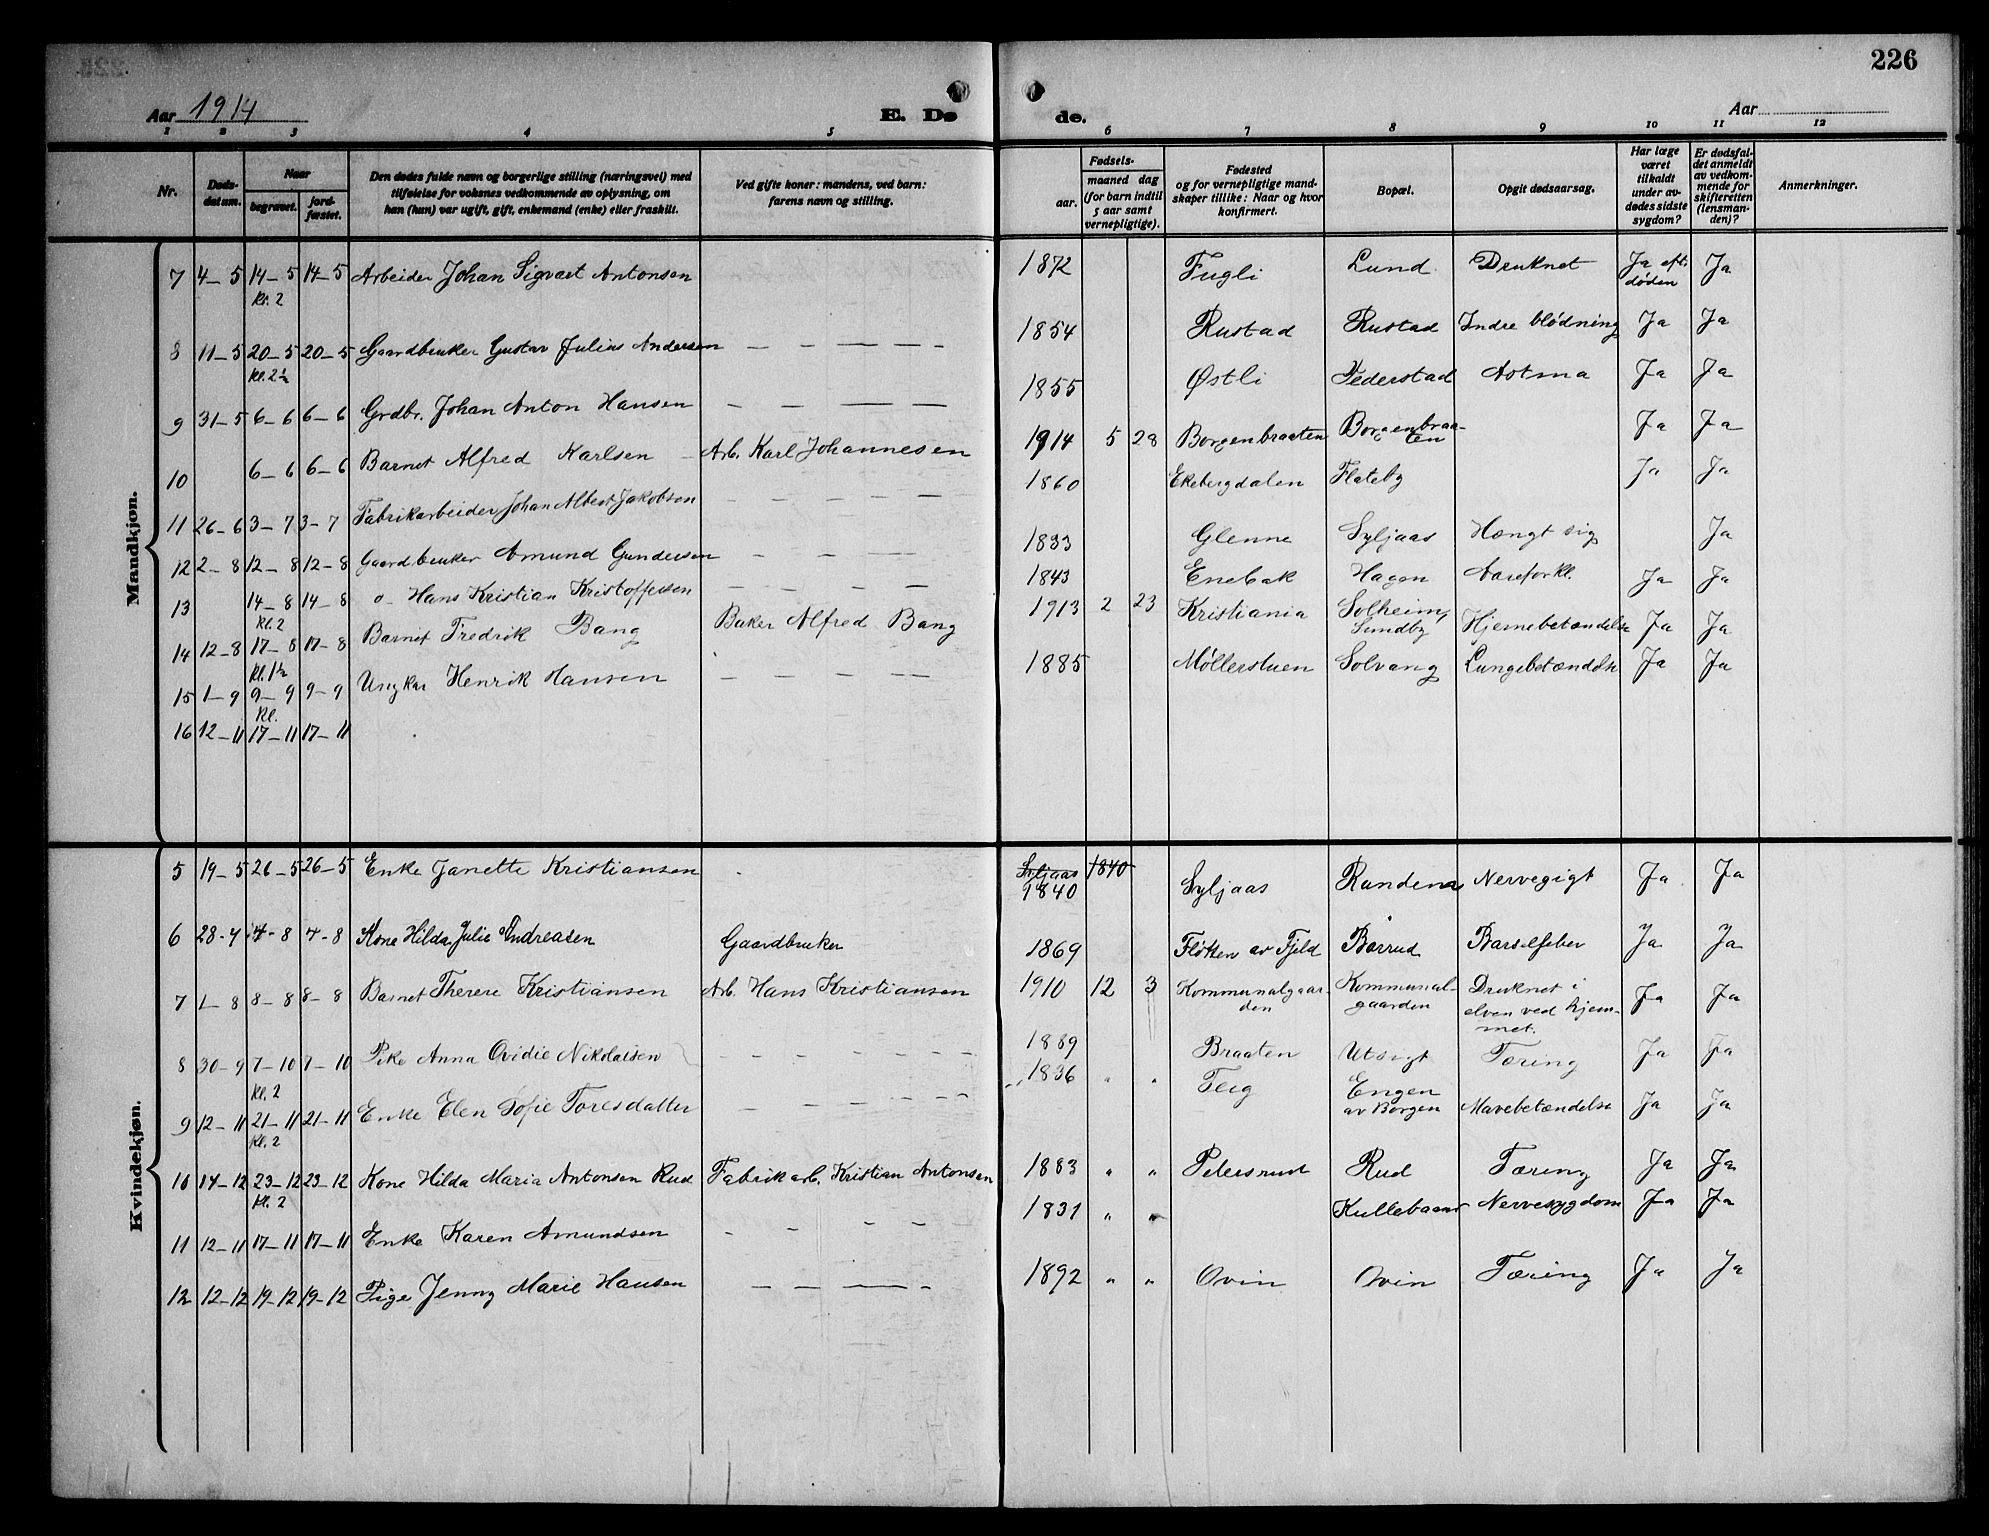 226
Aar 1914
E. Dø
de.
Aar
1 2 3 4 5 6 7 8 9 10 11 12
Nr.
Døds-
datum.
Naar
begravet.
jord-
fæstet.
Den dødes fulde navn og borgerlige stilling (næringsvei) med
tilføielse for voksnes vedkommende av oplysning, om
han (hun) var ugift, gift, enkemand (enke) eller fraskilt.
Ved gifte koner: mandens, ved barn:
farens navn og stilling.
Fødsels-
aar.
maaned dag
(for barn indtil
5 aar samt
vernepligtige).
Fødested
og for vernepligtige mand-
skaper tillike: Naar og hvor
konfirmert.
Bopæl.
Opgit dødsaarsag.
Har læge
været
tilkaldt
under av-
dødes sidste
sygdom?
Er dødsfal-
det anmeldt
av vedkom-
mende for
skifteretten
(lensman-
den)?
Anmerkninger.
Mandkjøn.
7 4-5 14-5 14-5 Arbeider Johan Sigvart Antonsen 1872 Fugli Lund Druknet Ja eft. Ja
kl. 2 døden
8 11-5 20-5 20-5 Gaardbruker Gustav Julius Andersen — — — — — 1854 Rustad Rustad Indre blødning Ja Ja
kl. 2½
9 31-5 6-6 6-6 Grdbr. Johan Anton Hansen — — — — 1855 Østli Tederstad Astma Ja Ja
10 6-6 6-6 Barnet Alfred Karlsen Arb. Karl Johannesen 1914 5 28 Borgenbraaten Borgenbraa-
ten Ja Ja
11 26-6 3-7 3-7 Fabrikarbeider Johan Albert Jakobsen — — — — 1860 Ekebergdalen Flateby Ja Ja
12 2-8 12-8 12-8 Gaardbruker Amund Gundersen — — — — 1833 Glenne Syljaas Hængt sig Ja
13 14-8 14-8 o- Hans Kristian Kristoffersen — — — — 1843 Enebak Hagen Aareforkl. Ja Ja
kl. 2
14 12-8 17-8 17-8 Barnet Fredrik Bang Baker Alfred Bang 1913 2 23 Kristiania Solheim, Hjernebetændelse Ja Ja
kl. 1½ Sundby
15 1-9 9-9 9-9 Ungkar Henrik Hansen — — — — 1885 Møllerstuen Solvang Lungebetændelse Ja Ja
kl.
16 12-11 17-11 17-11
Kvindekjøn.
5 19-5 26-5 26-5 Enke Janette Kristiansen Syljaas 1840
1840 Syljaas Randem Nervegigt Ja Ja
6 28-7 4-8 4-8 Kone Hilda Julie Andreasen Gaardbruker 1869 Fløtten av Fjeld Barrud Barselfeber Ja Ja
7 1-8 8-8 8-8 Barnet Therese Kristiansen Arb. Hans Kristiansen 1910 12 3 Kommunalgaar-
den Kommunal-
gaarden Druknet i
elven ved hjem-
met. Ja Ja
8 30-9 7-10 7-10 Pike Anna Ovidie Nikolaisen — — — — — — 1889 Braaten Utsigt Tæring Ja Ja
kl. 2
9 12-11 21-11 21-11 Enke Elen Sofie Toresdatter — — — — — 1836 " " Teig Engen
av Borgen Mavebetændelse Ja Ja
kl. 2
10 14-12 23-12 23-12 Kone Hilda Maria Antonsen Rud Fabrikarb. Kristian Antonsen 1883 " " Petersrud Rud Tæring Ja Ja
kl. 2
11 12-11 17-11 17-11 Enke Karen Amundsen — — — — 1831 " " Kullebaas Nervesygdom Ja Ja
12 12-12 19-12 19-12 Pige Jenny Marie Hansen — — — — 1892 " " Ovin Ovin Tæring Ja Ja